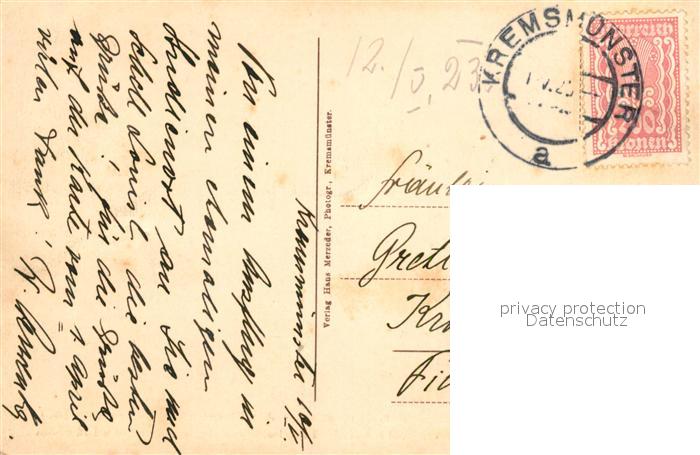 Kremsmünster 10/V.
Von einem Ausflug in
meinen ehemaligen
Studienort an Sie und
Schw. Louise die besten
Grüße! Für die Grüße
auf der Karte vom 1 April
vielen Dank!
Verlag Hans Merzeder, Photogr., Kremsmünster.
12./V. 23
KREMSMÜNSTER
a
Österreich
400
Kronen
Fräulein
Gretl
privacy protection
Datenschutz